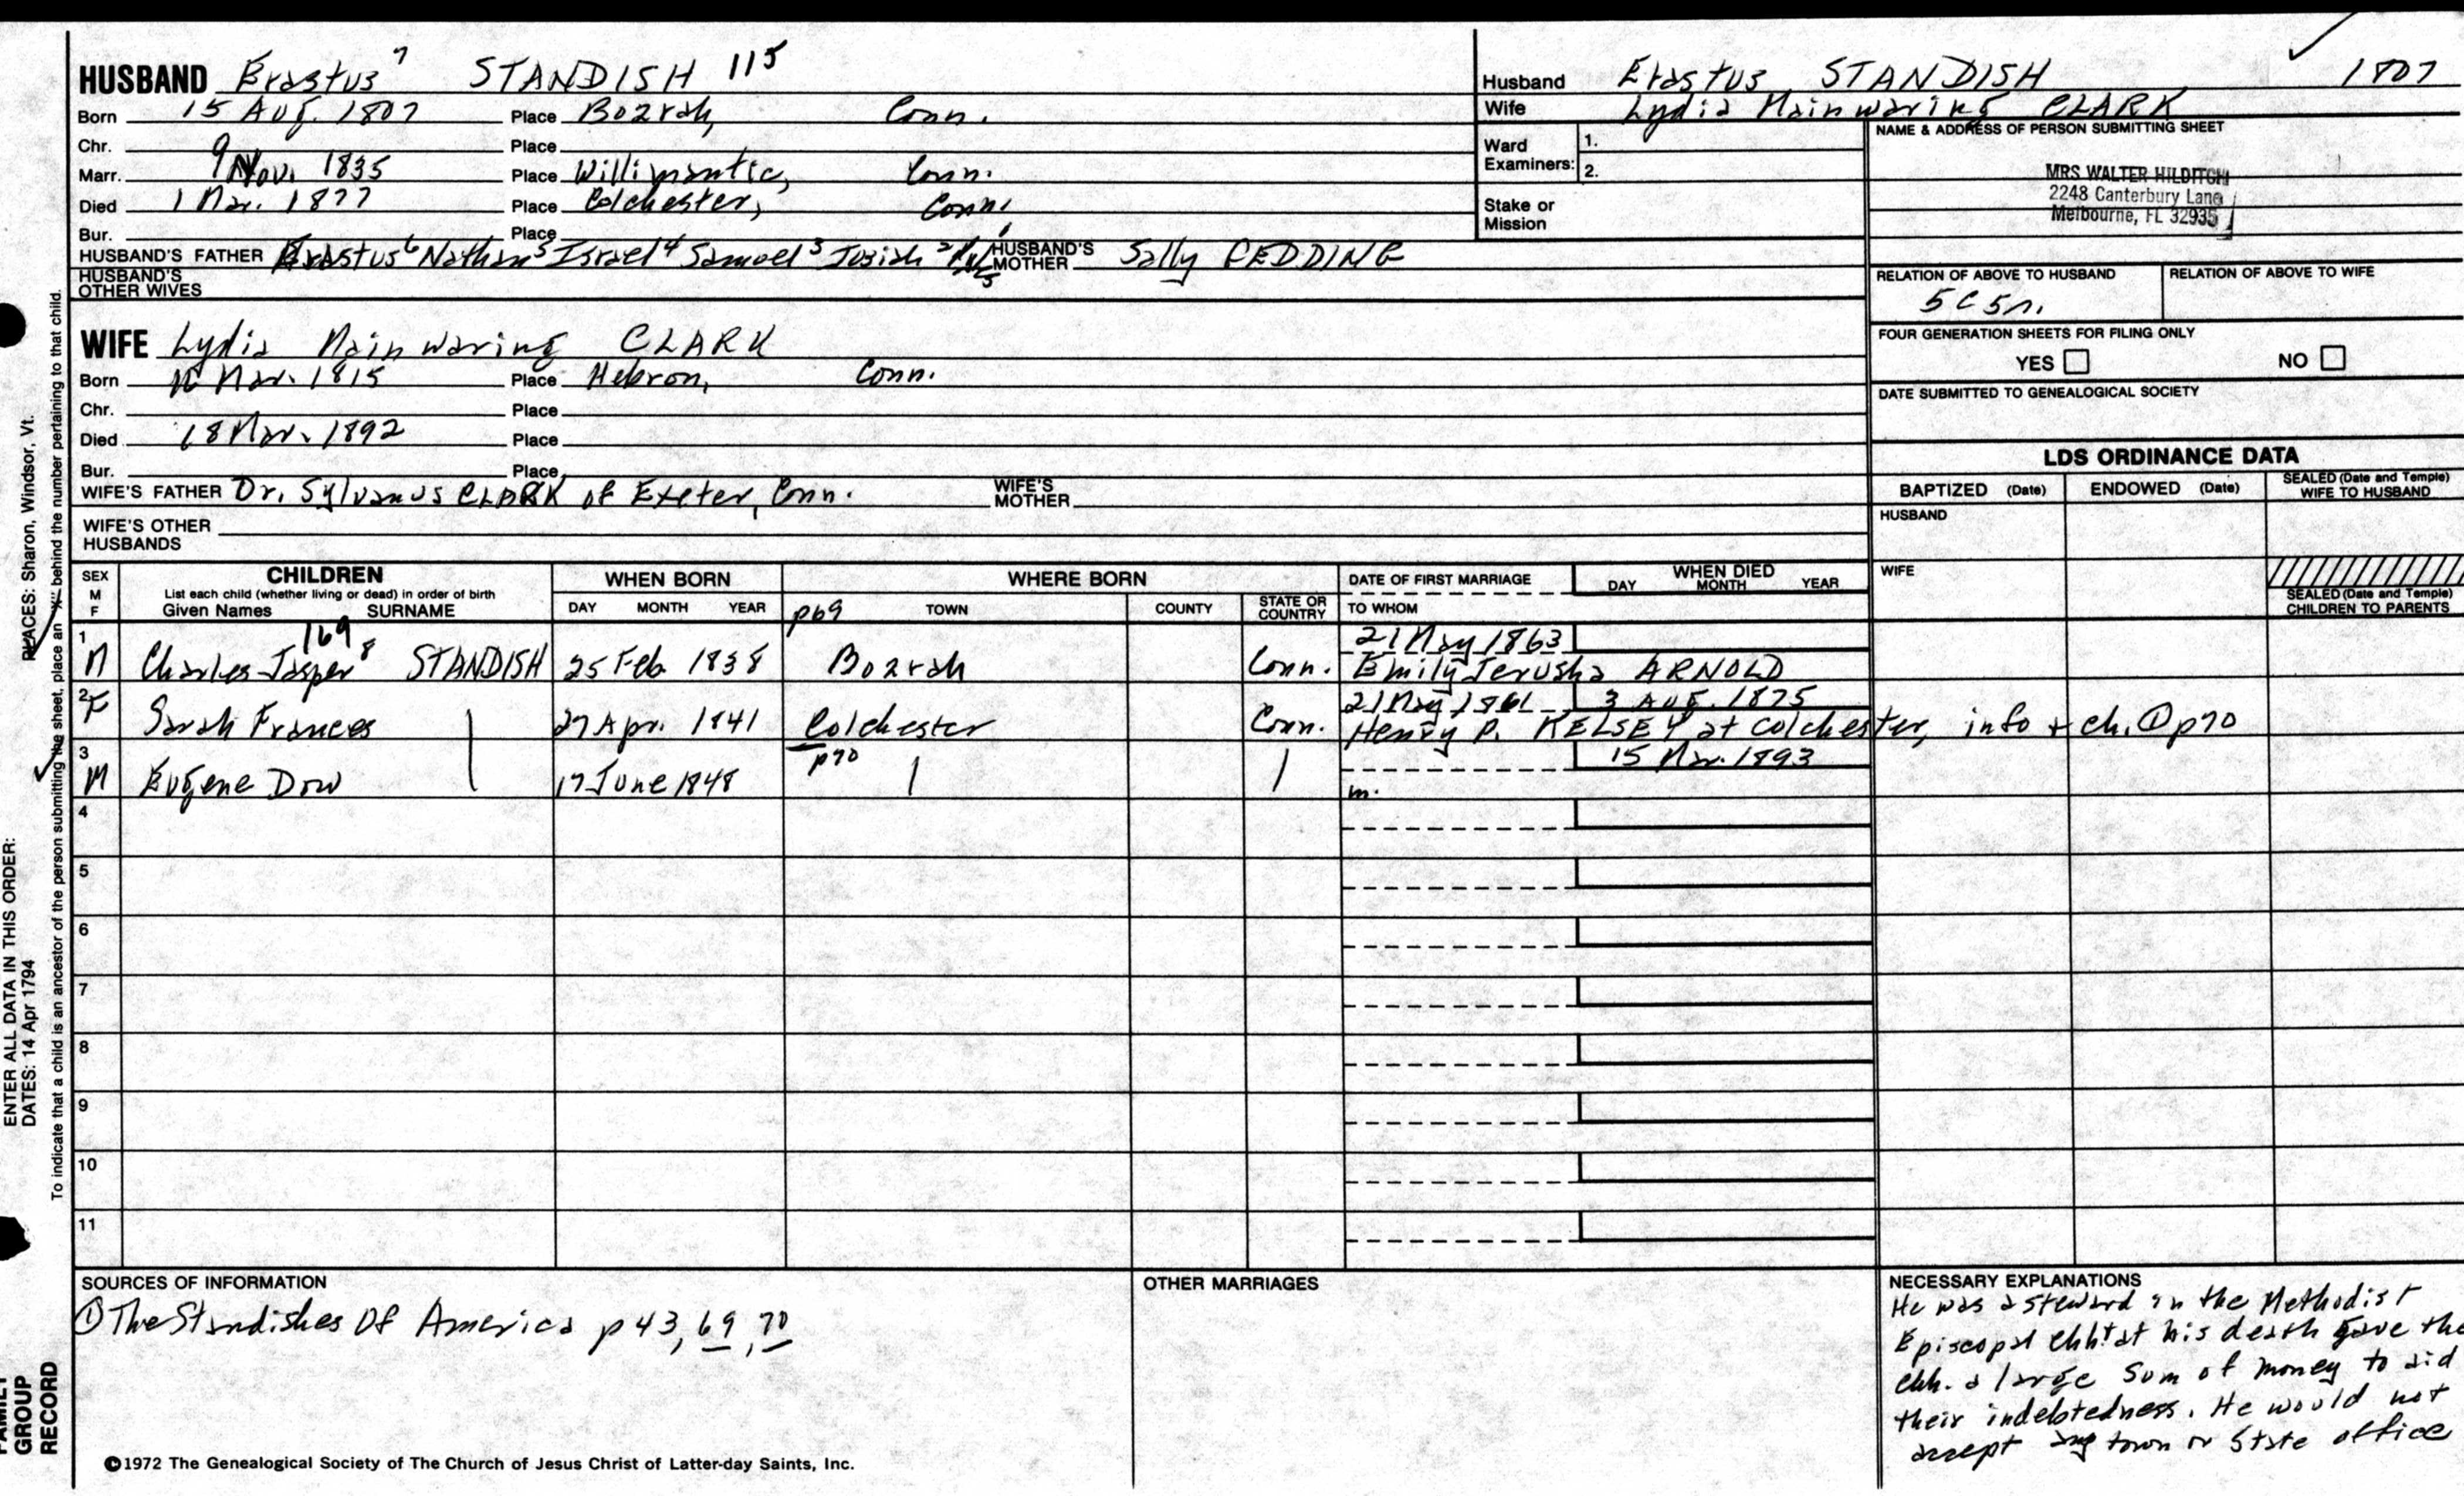 HUSBAND Erastus 7 STANDISH 115
Born 15 Aug. 1807 Place Bozrah, Conn.
Chr. Place
Marr. 9 Nov. 1835 Place Willimantic, Conn.
Died 1 Mar. 1877 Place Colchester, Conn.
Bur. Place
HUSBAND'S FATHER Erastus 6 Nathan 5 Israel 4 Samuel 3 Josiah 2 HUSBAND'S MOTHER Sally
HUSBAND'S OTHER WIVES
Husband Erastus STANDISH 1807
Wife Lydia Mainwaring CLARK
Ward Examiners: 1.
2.
Stake or Mission
NAME & ADDRESS OF PERSON SUBMITTING SHEET
MRS WALTER HILDITCH
2248 Canterbury Lane
Melbourne, FL 32935
RELATION OF ABOVE TO HUSBAND RELATION OF ABOVE TO WIFE
5C5r.
FOUR GENERATION SHEETS FOR FILING ONLY
YES NO
DATE SUBMITTED TO GENEALOGICAL SOCIETY
WIFE Lydia Mainwaring CLARK
Born Mar. 1815 Place Hebron, Conn.
Chr. Place
Died 18 Mar. 1892 Place
Bur. Place
WIFE'S FATHER Dr. Sylvanus CLARK of Exeter, Conn. WIFE'S MOTHER
WIFE'S OTHER HUSBANDS
LDS ORDINANCE DATA
BAPTIZED (Date) ENDOWED (Date) SEALED (Date and Temple) WIFE TO HUSBAND
HUSBAND
WIFE
SEALED (Date and Temple) CHILDREN TO PARENTS
SEX M F
CHILDREN
List each child (whether living or dead) in order of birth
Given Names SURNAME
WHEN BORN
DAY MONTH YEAR
WHERE BORN
p69 TOWN COUNTY STATE OR COUNTRY
DATE OF FIRST MARRIAGE
TO WHOM
WHEN DIED
DAY MONTH YEAR
169 21 May 1863
1 M Charles Jasper 8 STANDISH 25 Feb 1838 Bozrah Conn. Emily Jerusha ARNOLD
21 May 1861 3 Aug. 1875
2 F Sarah Frances 27 Apr. 1841 Colchester Conn. Henry P. KELSEY at Colchester, info + ch. ① p70
p70 15 Mar. 1893
3 M Eugene Dow 17 June 1848 m.
4
5
6
7
8
9
10
11
SOURCES OF INFORMATION
① The Standishes Of America p 43, 69, 70
OTHER MARRIAGES
NECESSARY EXPLANATIONS
He was a steward in the Methodist
Episcopal chh + at his death gave the
chh. a large sum of money to aid
their indebtedness. He would not
accept any town or State office
©1972 The Genealogical Society of The Church of Jesus Christ of Latter-day Saints, Inc.
ENTER ALL DATA IN THIS ORDER:
DATES: 14 Apr 1794
PLACES: Sharon, Windsor, Vt.
To indicate that a child is an ancestor of the person submitting the sheet, place an "X" behind the number pertaining to that child.
FAMILY GROUP RECORD